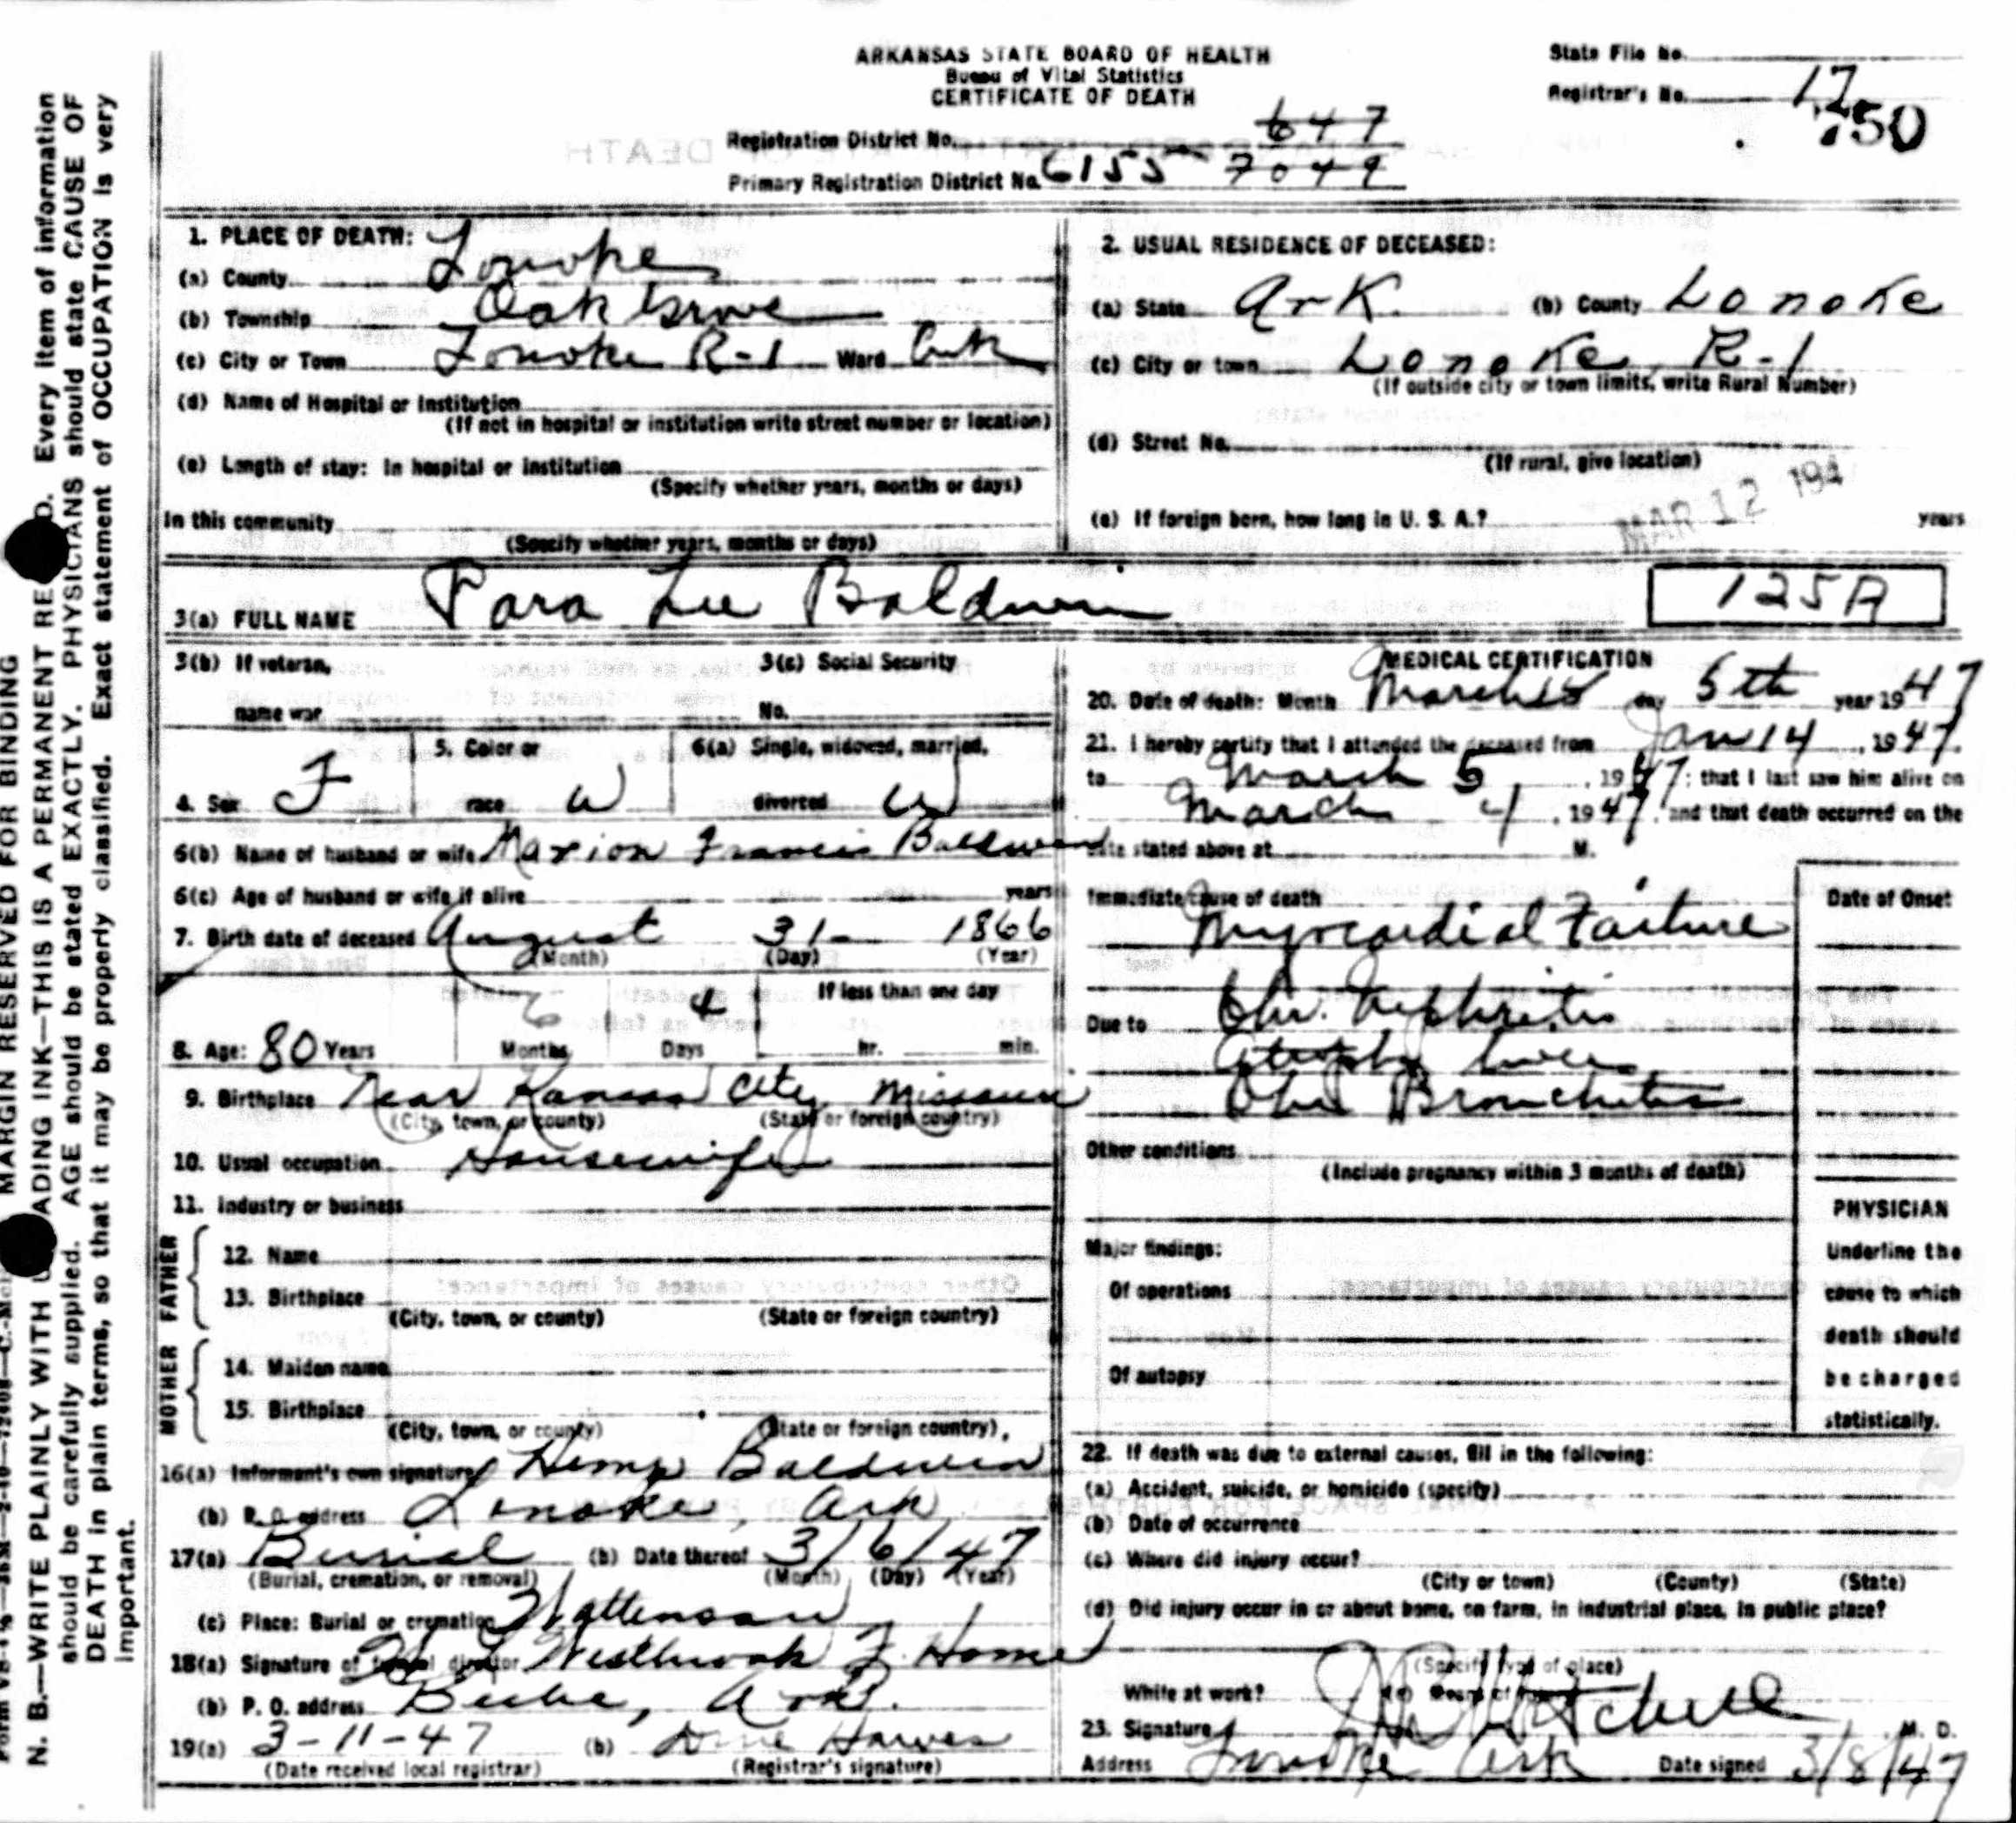 ARKANSAS STATE BOARD OF HEALTH
Bureau of Vital Statistics
CERTIFICATE OF DEATH
State File No.
Registrar's No. 17
750
Registration District No. 647
Primary Registration District No. 6155 7049
MARGIN RESERVED FOR BINDING
N. B.—WRITE PLAINLY WITH UNFADING INK—THIS IS A PERMANENT RECORD. Every item of information
should be carefully supplied. AGE should be stated EXACTLY. PHYSICIANS should state CAUSE OF
DEATH in plain terms, so that it may be properly classified. Exact statement of OCCUPATION is very
important.
1. PLACE OF DEATH:
(a) County Lonoke
(b) Township Oak Grove
(c) City or Town Lonoke R-1 Ward
(d) Name of Hospital or Institution
(If not in hospital or institution write street number or location)
(e) Length of stay: In hospital or institution
(Specify whether years, months or days)
In this community
(Specify whether years, months or days)
2. USUAL RESIDENCE OF DECEASED:
(a) State Ark. (b) County Lonoke
(c) City or town Lonoke, R-1
(If outside city or town limits, write Rural Number)
(d) Street No.
(If rural, give location)
MAR 12 194
(e) If foreign born, how long in U. S. A.? years
3(a) FULL NAME Para Lee Baldwin
125A
3(b) If veteran, name war
3(c) Social Security No.
4. Sex F
5. Color or race W
6(a) Single, widowed, married, divorced W
6(b) Name of husband or wife Marion Francis Baldwin
6(c) Age of husband or wife if alive years
7. Birth date of deceased August 31 1866
(Month) (Day) (Year)
8. Age: 80 Years 6 Months 4 Days If less than one day hr. min.
9. Birthplace Near Kansas City, Missouri
(City, town, or county) (State or foreign country)
10. Usual occupation Housewife
11. Industry or business
FATHER
12. Name
13. Birthplace
(City, town, or county) (State or foreign country)
MOTHER
14. Maiden name
15. Birthplace
(City, town, or county) (State or foreign country)
16(a) Informant's own signature Hemp Baldwin
(b) P. O. address Lonoke, Ark
17(a) Burial (b) Date thereof 3/6/47
(Burial, cremation, or removal) (Month) (Day) (Year)
(c) Place: Burial or cremation Wattensaw
18(a) Signature of funeral director Westbrook F. Home
(b) P. O. address Beebe, Ark.
19(a) 3-11-47 (b) Hawes
(Date received local registrar) (Registrar's signature)
MEDICAL CERTIFICATION
20. Date of death: Month March day 5th year 1947
21. I hereby certify that I attended the deceased from Jan 14, 1947
to March 5, 1947; that I last saw him alive on
March 4, 1947, and that death occurred on the
date stated above at M.
Immediate cause of death
Date of Onset
Myocardial Failure
Due to Chr. Nephritis
Atrophy liver
Chr Bronchitis
Other conditions
(Include pregnancy within 3 months of death)
Major findings:
Of operations
Of autopsy
PHYSICIAN
Underline the
cause to which
death should
be charged
statistically.
22. If death was due to external causes, fill in the following:
(a) Accident, suicide, or homicide (specify)
(b) Date of occurrence
(c) Where did injury occur?
(City or town) (County) (State)
(d) Did injury occur in or about home, on farm, in industrial place, in public place?
(Specify type of place)
While at work?
23. Signature M. D.
Address Lonoke Ark Date signed 3/8/47